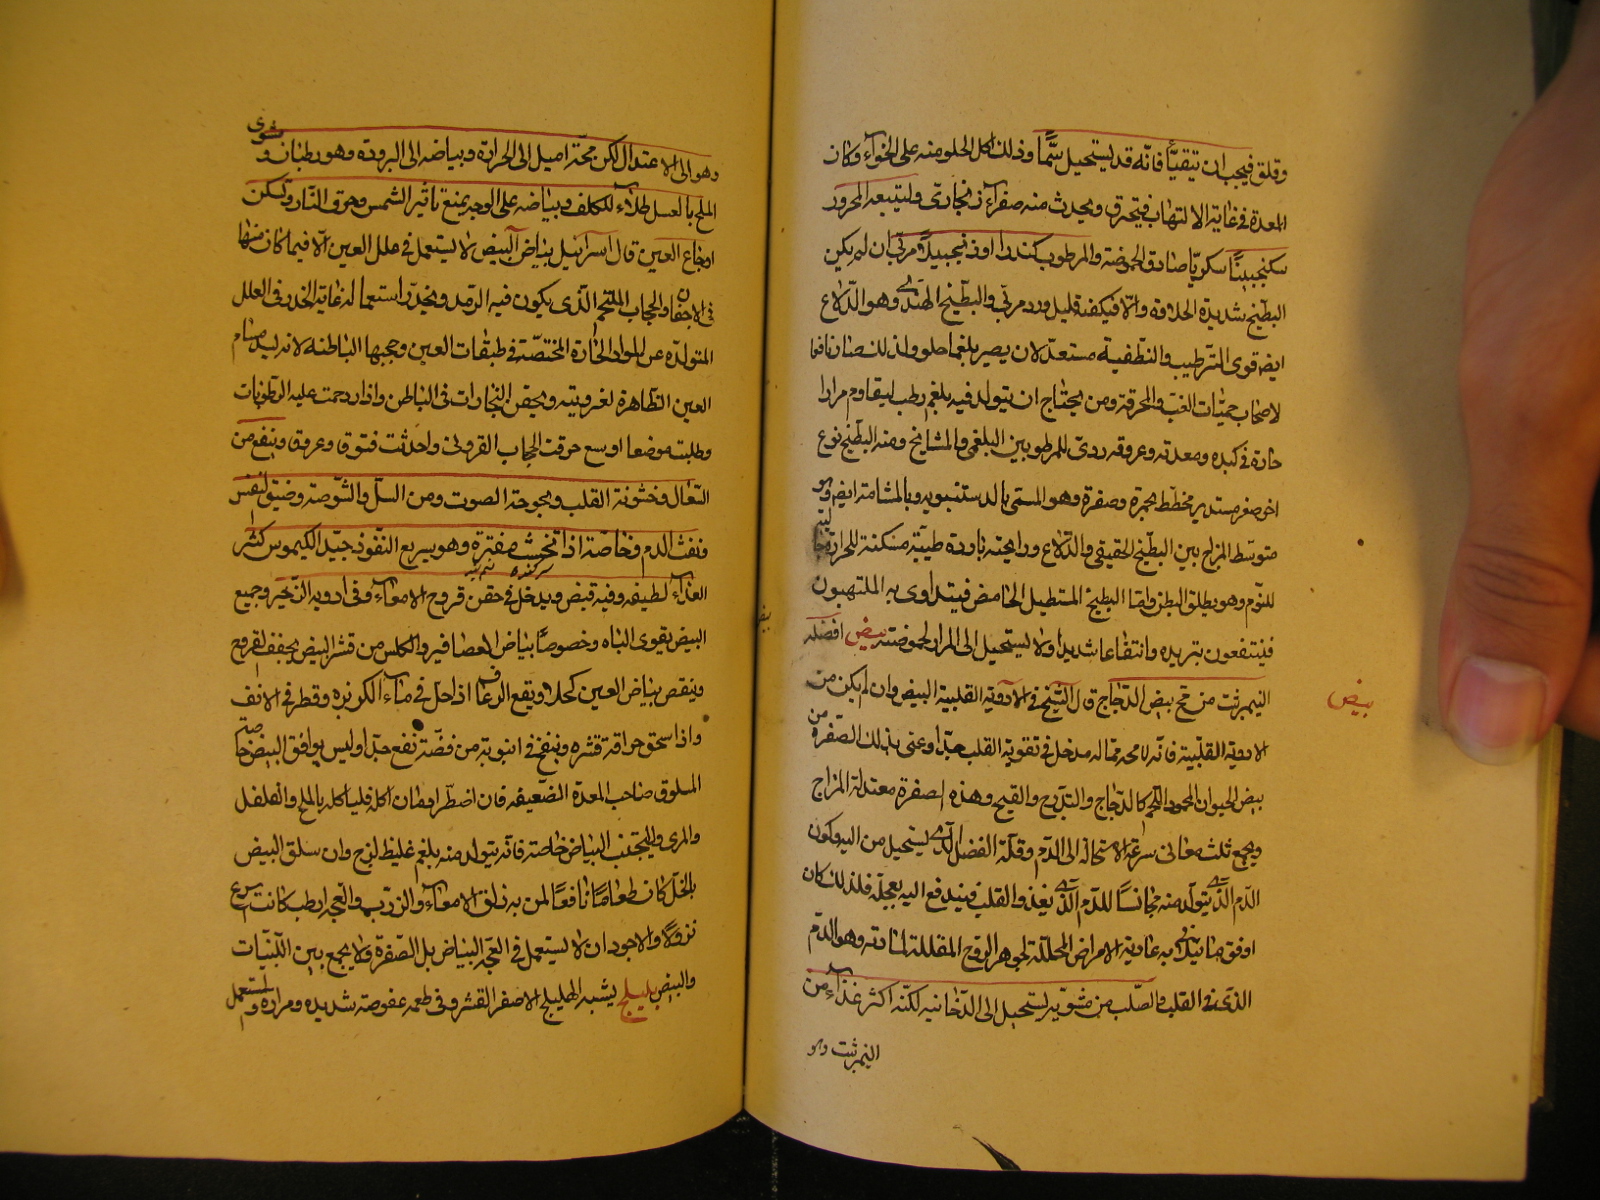 وقلق فيجب ان يتقيأ فانه قد يستحيل سما وذلك اكل الحلو منه على الخواء وكان
المعدة في غاية الالتهاب فيحترق ويحدث منه صفراء زنجاري وليتبعه المحرور
سكنجبينا سكريا صادق الحموضة والمرطوب كندرا او زنجبيلا مربى ان لم يكن
البطيخ شديدة الحلاوة والا فيكفنه قليل ورد مربى والبطيخ الهندي وهو الدلاع
ايضا قوى الترطيب والتطفية مستعد لان يصير بلغما حلوا ولذلك صار نافعا
لاصحاب حميات الغب والمحرقة ومن يحتاج ان يتولد فيه بلغم رطب ليقاوم مرارا
حادة في كبده ومعدته وعروقه ردى للمرطوبين البلغمى والمشايخ ومنه البطيخ نوع
اخر صغر مستدير مخطط بحمرة وصفرة وهو المسمى بالدستنبويه وبالمشامة ايضا وهو
متوسط المزاج بين البطيخ الحقيقى والدلاع ورايحته باردة طيبة مسكنة للحرارة
للنوم وهو يطلق البطن واما البطيخ المستطيل الحامض فيتداوى به الملتهبون
فينتفعون بتبريده وانتفاعا شديدا ولا يستحيل الى المرار لحموضته بيض افضله
النيمرشت من مح بيض الدجاج قال الشيخ في الادوية القلبية البيض وان لم يكن من
الادوية القلبية فانه لا محه مما له مدخل في تقوية القلب جدا وعنى بذلك الصفرة من
بيض الحيوان المحمود اللحم كالدجاج والتدرج والقبج وهذه الصفرة معتدلة المزاج
ويجمع ثلثة معانى سرعة الاستحالة الى الدم وقلة الفضل الذى يستحيل من اليه وكون
الدم الذى يتولد منه مجانسا للدم الذى يغذو القلب فيندفع اليه بعجلة فلذلك كان
اوفق ما يتلافى به عادية الامراض المحللة لجوهر الروح المقللة لمادته وهو الدم
الذى في القلب والصلب من مشويه يستحيل الى الدخانية لكنه اكثر غذاء من
النيمرشت وهو
بيض
وهو الى الاعتدال لكن محه اميل الى الحرارة وبياضه الى البرودة وهو رطبان و مشوى
المح بالعسل طلاء للكلف وبياضه على الوجه يمنع تاثير الشمس وحرق النار وتسكن
اوجاع العين قال اسرائيل بياض البيض لا يستعمل في علل العين الا فيما كان منها
في الاجفان والحجاب الملتحم الذى يكون فيه الرمد ويحذر استعماله غاية الحذر في العلل
المتولدة عن المواد الحادة المختصة في طبقات العين وحجبها الباطنة لانه ليسد مسام
العين الظاهرة لغرويته ويحقن البخارات في الباطن واذا ازدحمت عليه الرطوبات
وطلبت موضعا اوسع خرقت الحجاب القرونى واحدثت فتوق وعروق وينفع من
السعال وخشونة القلب وبحوحة الصوت ومن السل والشوصة وضيق النفس
ونفث الدم وخاصة اذا تحست مفترة وهو سريع النفوذ جيد الكيموس كثير
الغذاء لطيفه وفيه قبض ويدخل في حقن قروح الامعاء وفي ادوية الزحير وجميع
البيض يقوى الباه وخصوصا بياض العصافير والكلس من قشر البيض يجفف القروح
وينقص بياض العين كحلا ويقع الرعاف اذا حل في ماء الكزبرة وقطر في الانف
واذا سحق حراقة قشره ونفخ في انبوبة من فضة نفع جدا وليس يوافق البيض خاصة
المسلوق صاحب المعدة الضعيفة فان اضطر انسان اكله فلياكله بالملح والفلفل
والمرى وليجتنب البياض خاصة فانه يتولد منه بلغم غليظ لزج وان سلق البيض
بالخل كان طعاما نافعا لمن به زلق الامعاء والذرب والعجة ارطب كانت اسرع
نزولا والاجود ان لا يستعمل في العجة البياض بل الصفرة ولا يجمع بين اللبنيات
والبيض بليلج يشبه الهليلج الاصفر القشر وفي طعمه عفوصة شديده ومرارة وتستعمل